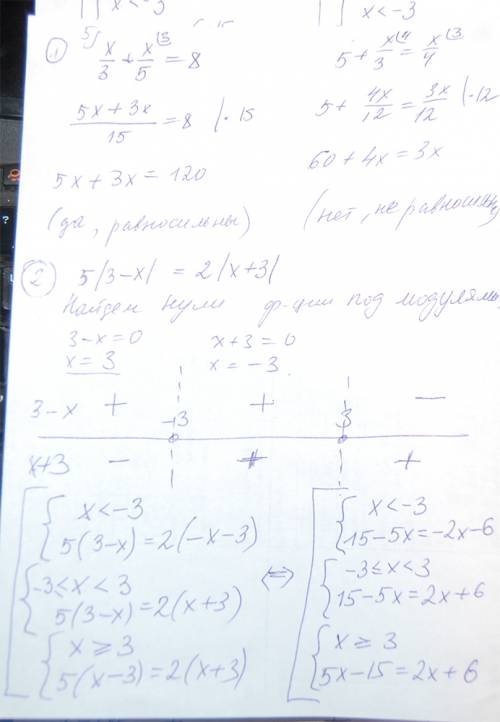 x < -3
x < -3
1
x/3 + x/5 = 8
5 + x/3 = x/4
(5x + 3x)/15 = 8 |· 15
5 + 4x/12 = 3x/12 |· 12
5x + 3x = 120
60 + 4x = 3x
(да, равносильны)
(нет, не равносильны)
2 5|3-x| = 2|x+3|
Найдем нули ф-ции под модулями
3-x=0
x+3=0
x = 3
x = -3
3-x + + -
-3 3
x+3 - + +
{ x < -3
5(3-x) = 2(-x-3)
{ -3 ≤ x < 3
5(3-x) = 2(x+3)
{ x ≥ 3
5(x-3) = 2(x+3)
⇔
{ x < -3
15-5x = -2x-6
{ -3 ≤ x < 3
15-5x = 2x+6
{ x ≥ 3
5x-15 = 2x+6